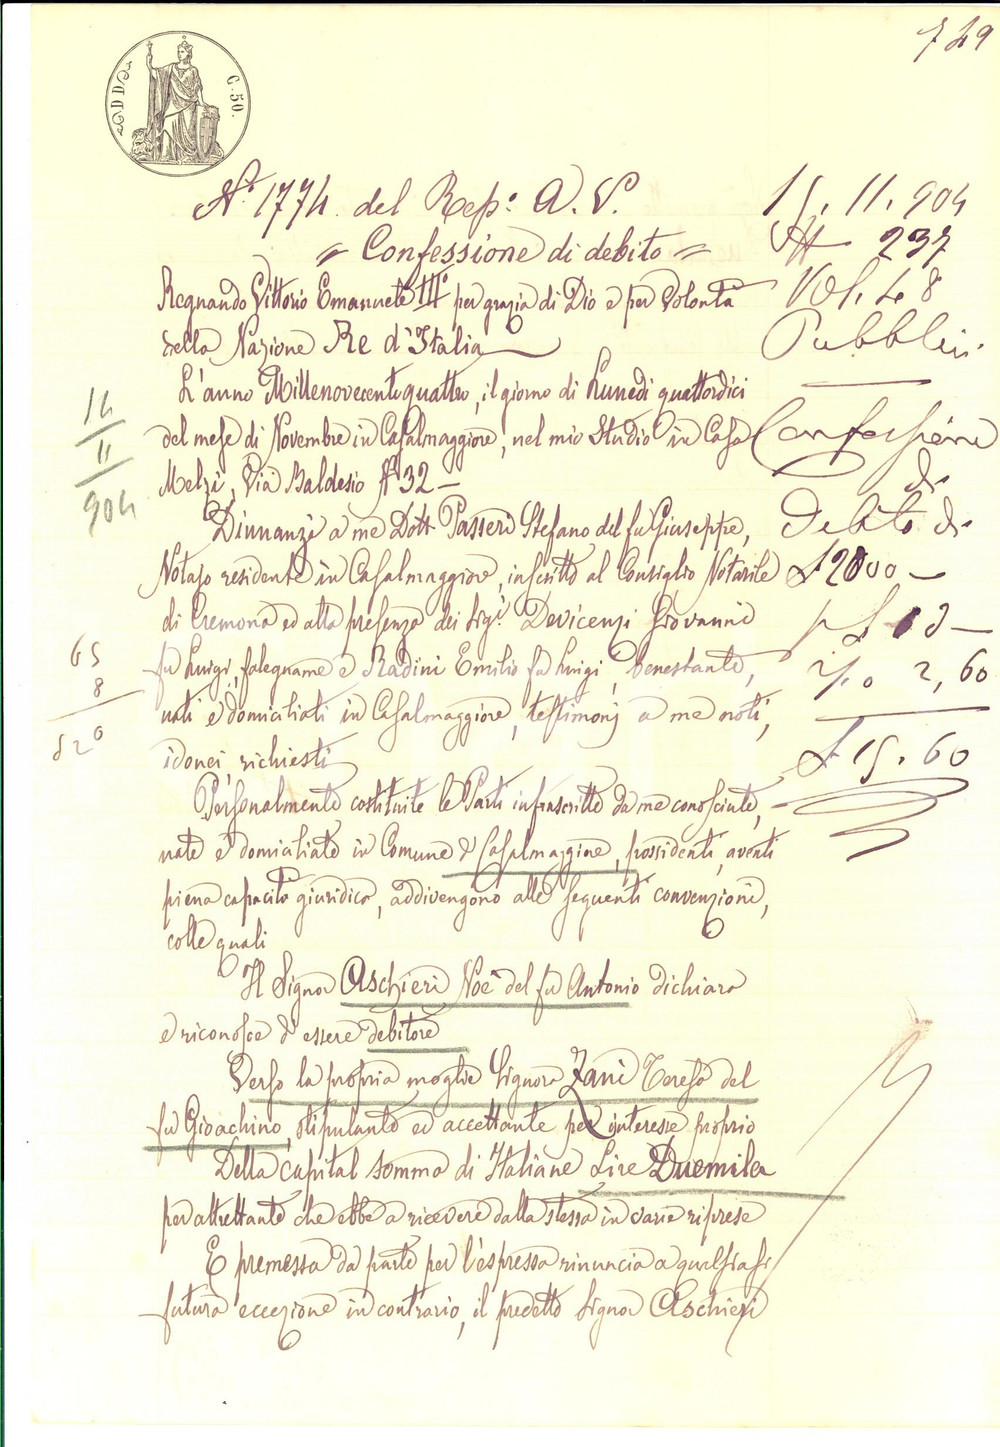 749
C. 50.
N.° 1774 del Rep.° A. V.
= Confessione di debito =
Regnando Vittorio Emanuele III° per grazia di Dio e per Volontà
della Nazione Re d'Italia
L'anno Millenovecentoquattro, il giorno di Lunedì quattordici
del mese di Novembre in Casalmaggiore, nel mio Studio in Casa
Melzi, Via Baldesio N° 32 –
Dinnanzi a me Dott. Passeri Stefano del fu Giuseppe,
Notajo residente in Casalmaggiore, inscritto al Consiglio Notarile
di Cremona ed alla presenza dei Sigi. Devicenzi Giovanni
fu Luigi, falegname e Radini Emilio fu Luigi, benestante,
nati e domiciliati in Casalmaggiore, testimonj a me noti,
idonei, richiesti
Personalmente costituite le Parti infrascritte da me conosciute, –
nate e domiciliate in Comune di Casalmaggiore, possidenti, aventi
piena capacità giuridica, addivengono alle seguenti convenzioni,
colle quali
Il Signor Aschieri Noè del fu Antonio dichiara
e riconosce d'essere debitore
Verso la propria moglie Signora Zani Teresa del
fu Gioachino, stipulante ed accettante per interesse proprio
Della capital somma di Italiane Lire Duemila
per altrettante che ebbe a ricevere dalla stessa in varie riprese
E premessa da parte per l'espressa rinuncia a qualsiasi
futura eccezione in contrario, il predetto Signor Aschieri
15. 11. 904
N 237
Vol. 48
Pubblici
Confessione
di
Debito di
£ 2000 –
£ 13 –
2,60
£ 15.60
14
11
904
65
8
520